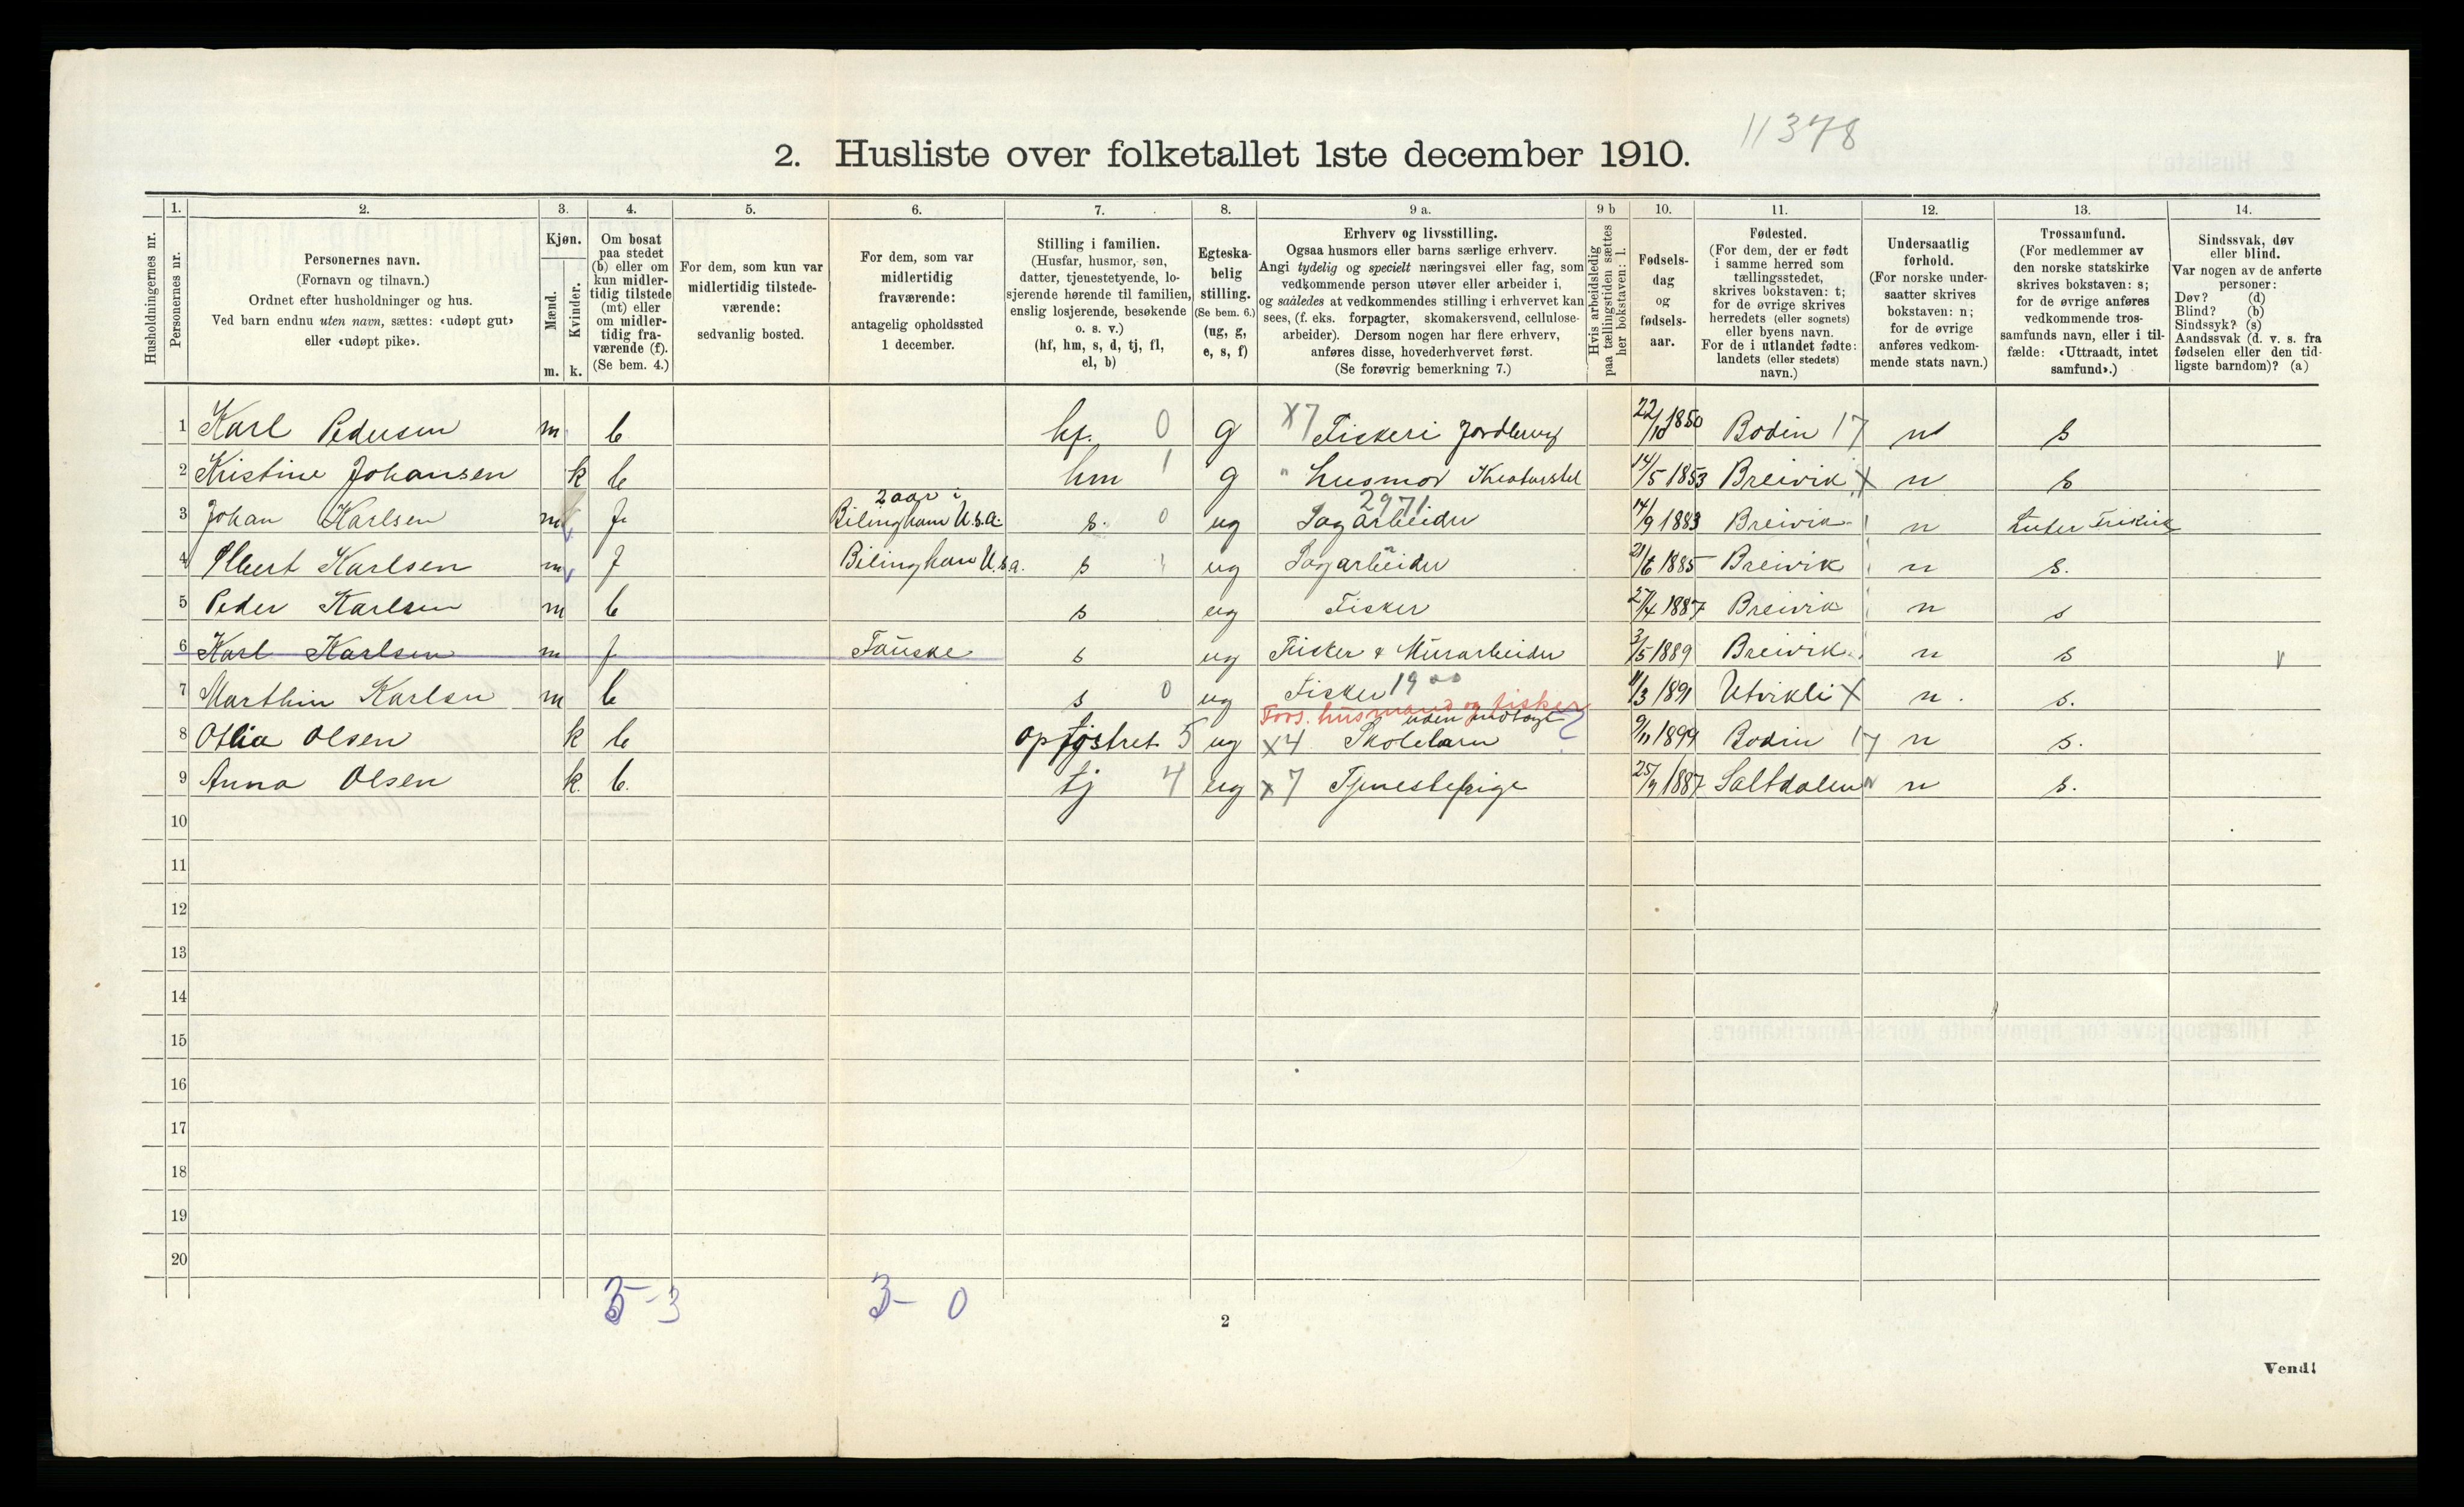 11378
2. Husliste over folketallet 1ste december 1910.
Husholdningernes nr.
1. Personernes nr.
2. Personernes navn.
(Fornavn og tilnavn.)
Ordnet efter husholdninger og hus.
Ved barn endnu uten navn, sættes: «udøpt gut»
eller «udøpt pike».
3. Kjøn.
Mænd. Kvinder.
m. k.
4. Om bosat
paa stedet
(b) eller om
kun midler-
tidig tilstede
(mt) eller
om midler-
tidig fra-
værende (f).
(Se bem. 4.)
5. For dem, som kun var
midlertidig tilstede-
værende:
sedvanlig bosted.
6. For dem, som var
midlertidig
fraværende:
antagelig opholdssted
1 december.
7. Stilling i familien.
(Husfar, husmor, søn,
datter, tjenestetyende, lo-
sjerende hørende til familien,
enslig losjerende, besøkende
o. s. v.)
(hf, hm, s, d, tj, fl,
el, b)
8. Egteska-
belig
stilling.
(Se bem. 6.)
(ug, g,
e, s, f)
9 a. Erhverv og livsstilling.
Ogsaa husmors eller barns særlige erhverv.
Angi tydelig og specielt næringsvei eller fag, som
vedkommende person utøver eller arbeider i,
og saaledes at vedkommendes stilling i erhvervet kan
sees, (f. eks. forpagter, skomakersvend, cellulose-
arbeider). Dersom nogen har flere erhverv,
anføres disse, hovederhvervet først.
(Se forøvrig bemerkning 7.)
9 b Hvis arbeidsledig
paa tællingstiden sættes
her bokstaven: l.
10. Fødsels-
dag
og
fødsels-
aar.
11. Fødested.
(For dem, der er født
i samme herred som
tællingsstedet,
skrives bokstaven: t;
for de øvrige skrives
herredets (eller sognets)
eller byens navn.
For de i utlandet fødte:
landets (eller stedets)
navn.)
12. Undersaatlig
forhold.
(For norske under-
saatter skrives
bokstaven: n;
for de øvrige
anføres vedkom-
mende stats navn.)
13. Trossamfund.
(For medlemmer av
den norske statskirke
skrives bokstaven: s;
for de øvrige anføres
vedkommende tros-
samfunds navn, eller i til-
fælde: «Uttraadt, intet
samfund».)
14. Sindssvak, døv
eller blind.
Var nogen av de anførte
personer:
Døv? (d)
Blind? (b)
Sindssyk? (s)
Aandssvak (d. v. s. fra
fødselen eller den tid-
ligste barndom)? (a)
1 Karl Pedersen m b hf. 0 g X7 Fiskeri Jordbrug 22/10 1850 Bodin 17 n s
2 Kristine Johansen k b hm 1 g " husmor Kreaturstel 14/5 1853 Breivik X n s
2 aar i
2971
3 Johan Karlsen m f Bilingham U.s.a. s. 0 ug Sagarbeider 14/9 1883 Breivik n Luter Frikirk
4 Albert Karlsen m f Bilingham U.s.a. s ug Sagarbeider 21/6 1885 Breivik n s.
5 Peder Karlsen m b s ug Fisker 27/4 1887 Breivik n s
6 Karl Karlsen m f Fauske s ug Fisker & Murarbeider 3/5 1889 Breivik n s
7 Marthin Karlsen m b s 0 ug Fisker 1900 11/3 1891 Utvikli X n. s.
Fors. husmand og fisker
uden
8 Otlia Olsen k b opfostret 5 ug X4 Skolebarn ? 9/11 1899 Bodin 17 n s.
9 Anna Olsen k b. tj 4 ug X7 Tjenestepige 25/9 1887 Saltdalen n s.
10
11
12
13
14
15
16
17
18
19
20
5-3 3-0
2
Vend!